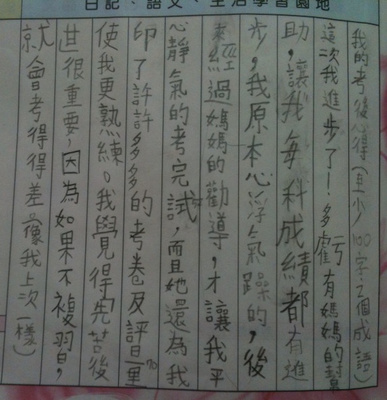 日記、語文、生活學習園地
我的考後心得(至少100字、2個成語)
這次我進步了!多虧有媽媽的幫
助,讓我每科成績都有進
步,我原本心浮氣躁的,後
來經過媽媽的勸導,才讓我平
心靜氣的考完試,而且她還為我
印了許許多多的考卷及評量
使我更熟練。我覺得先苦後
很重要,因為如果不複習,
就會考得得差(像我上次一樣)